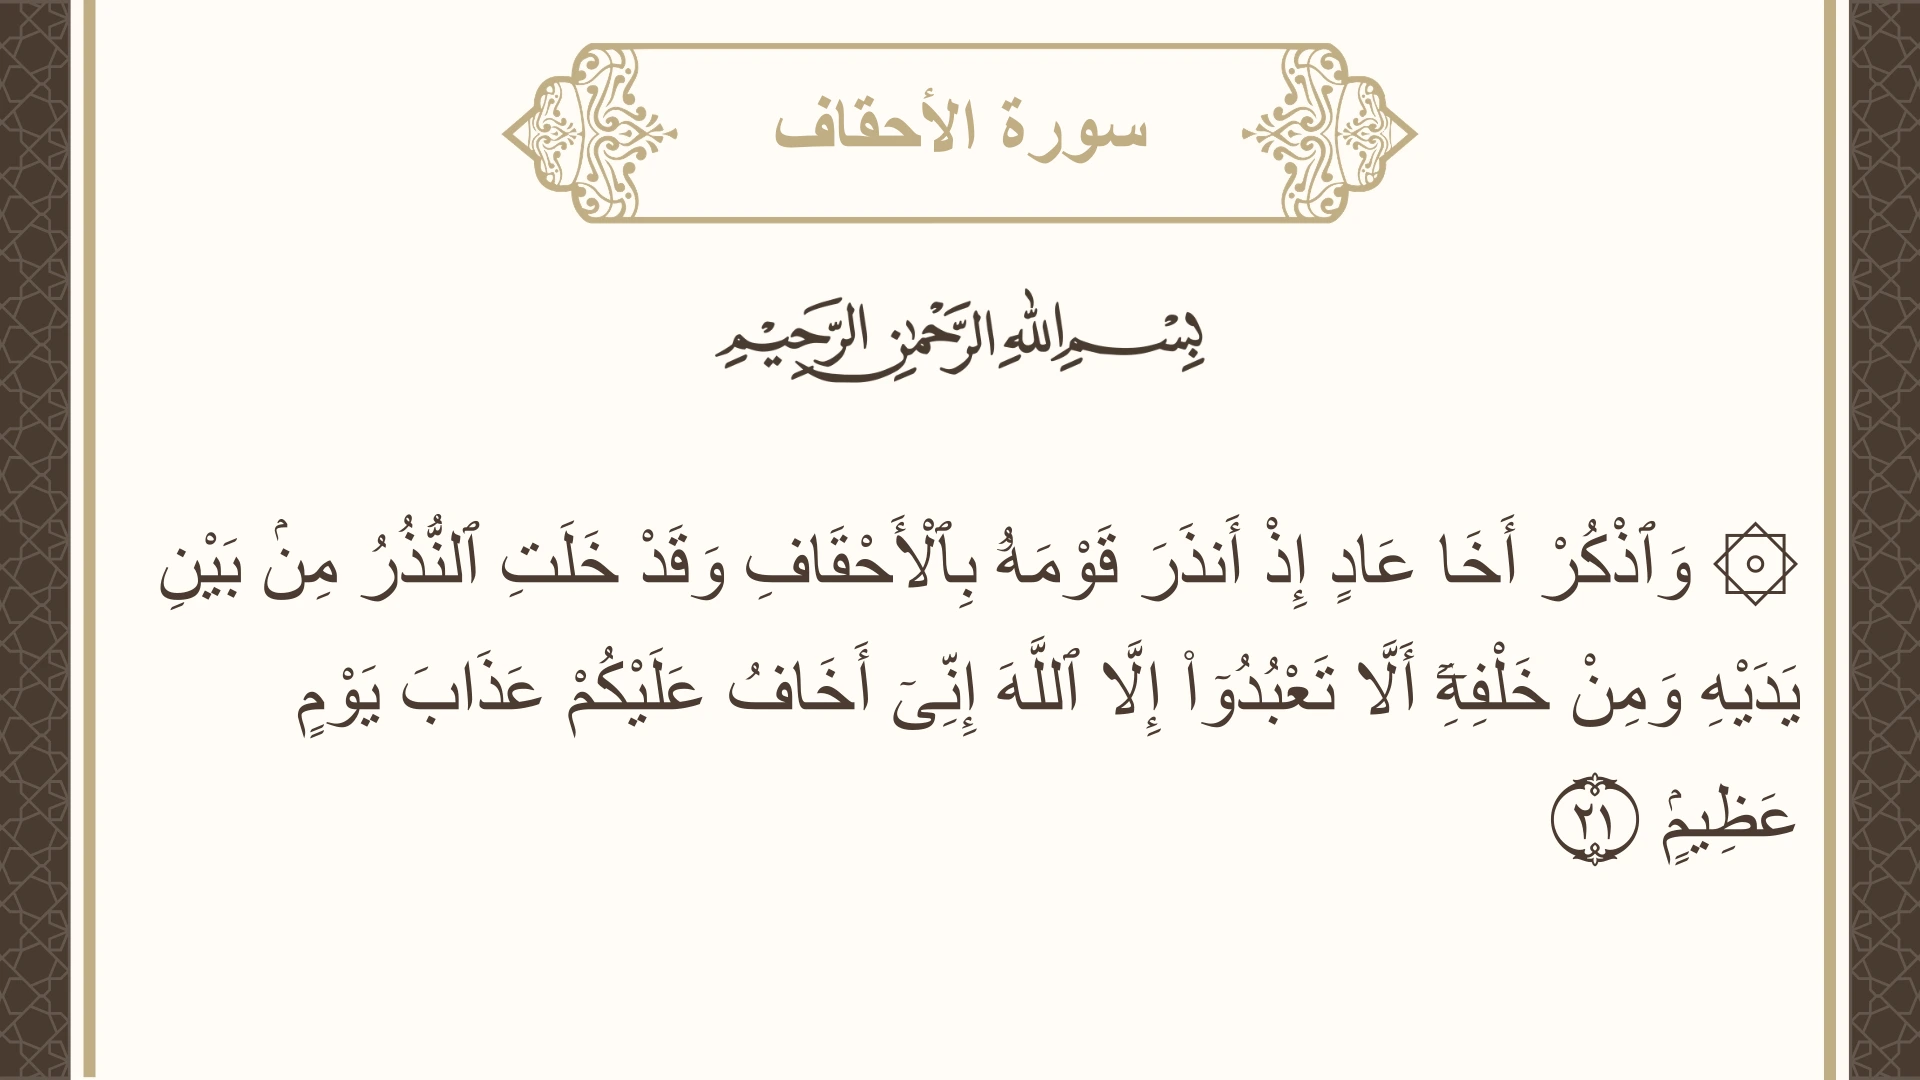 سورة الأحقاف
بِسْمِ اللهِ الرَّحْمٰنِ الرَّحِيْمِ
۞ وَٱذْكُرْ أَخَا عَادٍ إِذْ أَنذَرَ قَوْمَهُۥ بِٱلْأَحْقَافِ وَقَدْ خَلَتِ ٱلنُّذُرُ مِنۢ بَيْنِ
يَدَيْهِ وَمِنْ خَلْفِهِۦٓ أَلَّا تَعْبُدُوٓا۟ إِلَّا ٱللَّهَ إِنِّىٓ أَخَافُ عَلَيْكُمْ عَذَابَ يَوْمٍ
عَظِيمٍۢ ٢١